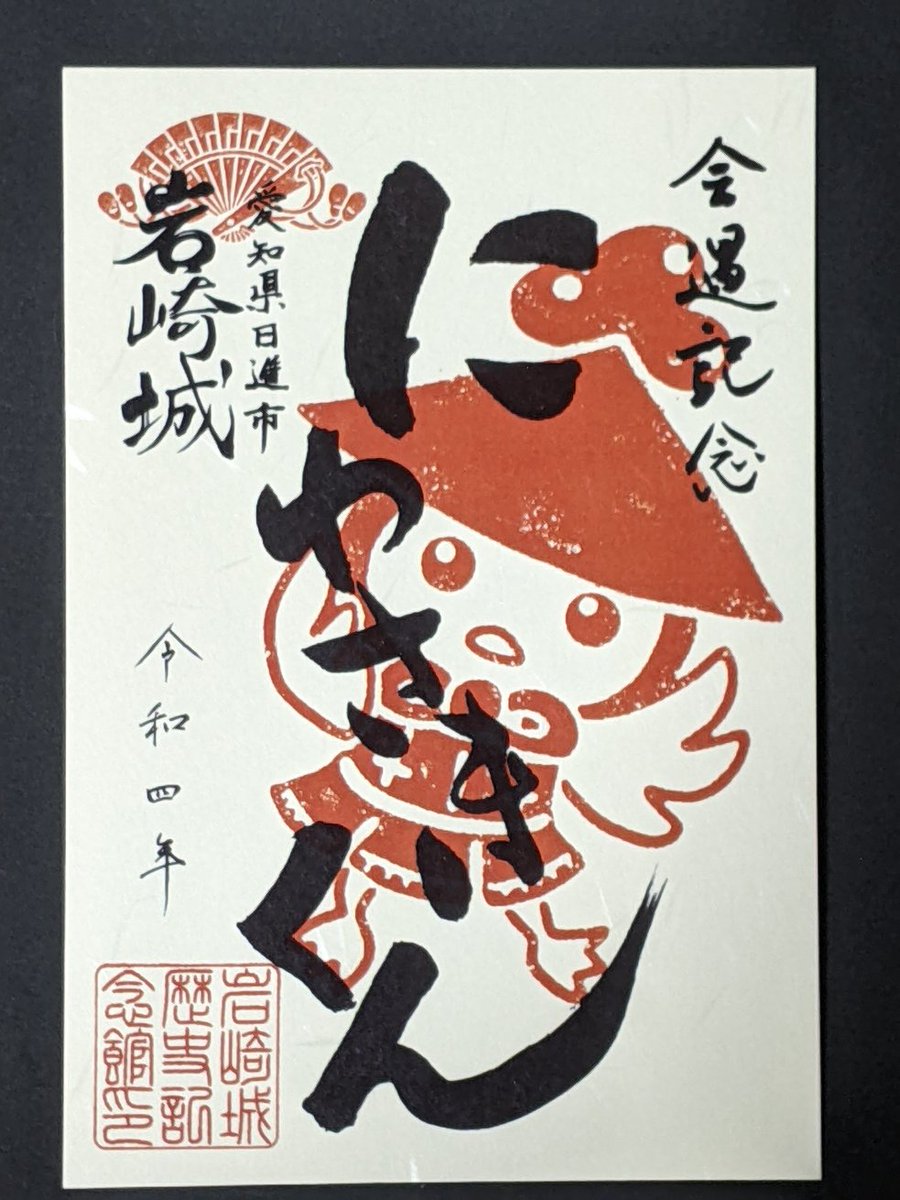 会遇記念
にわさきくん
愛知県日進市
岩崎城
令和四年
岩崎城
歴史記
念館印